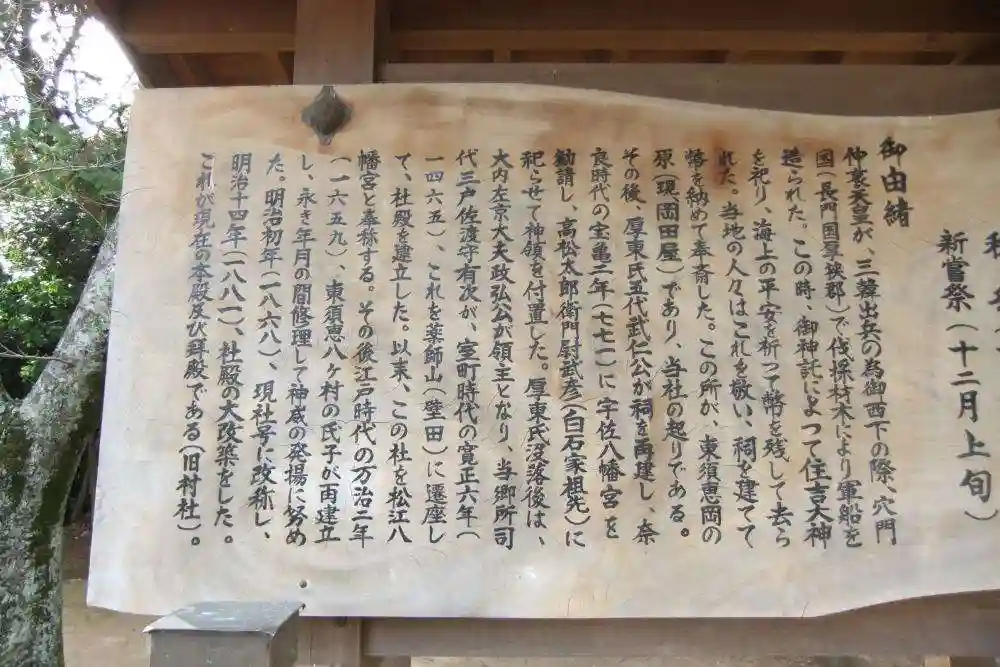 新嘗祭(十二月上旬)
御由緒
仲哀天皇が、三韓出兵の為御西下の際、穴門
国(長門国厚狭郡)で伐採材木により軍船を
造られた。この時、御神託によつて住吉大神
を祀り、海上の平安を祈って幣を残して去ら
れた。当地の人々はこれを敬い、祠を建てて
幣を納めて奉斎した。この所が、東須恵岡の
原(現、岡田屋)であり、当社の起りである。
その後、厚東氏五代武仁公が祠を再建し、奈
良時代の宝亀二年(七七一)に宇佐八幡宮を
勧請し、高松太郎衛門尉武彦(白石家祖先)に
祀らせて神領を付置した。厚東氏没落後は、
大内左京大夫政弘公が領主となり、当郷所司
代三戸佐渡守有次が、室町時代の寛正六年(
一四六五)、これを薬師山(壁田)に遷座し
て、社殿を建立した。以末、この社を松江八
幡宮と奉称する。その後江戸時代の万治二年
(一六五九)、東須恵八ヶ村の氏子が再建立
し、永き年月の間修理して神威の発揚に努め
た。明治初年(一八六八)、現社号に改称し、
明治十四年(一八八一)、社殿の大改築をした。
これが現在の本殿及び拝殿である(旧村社)。